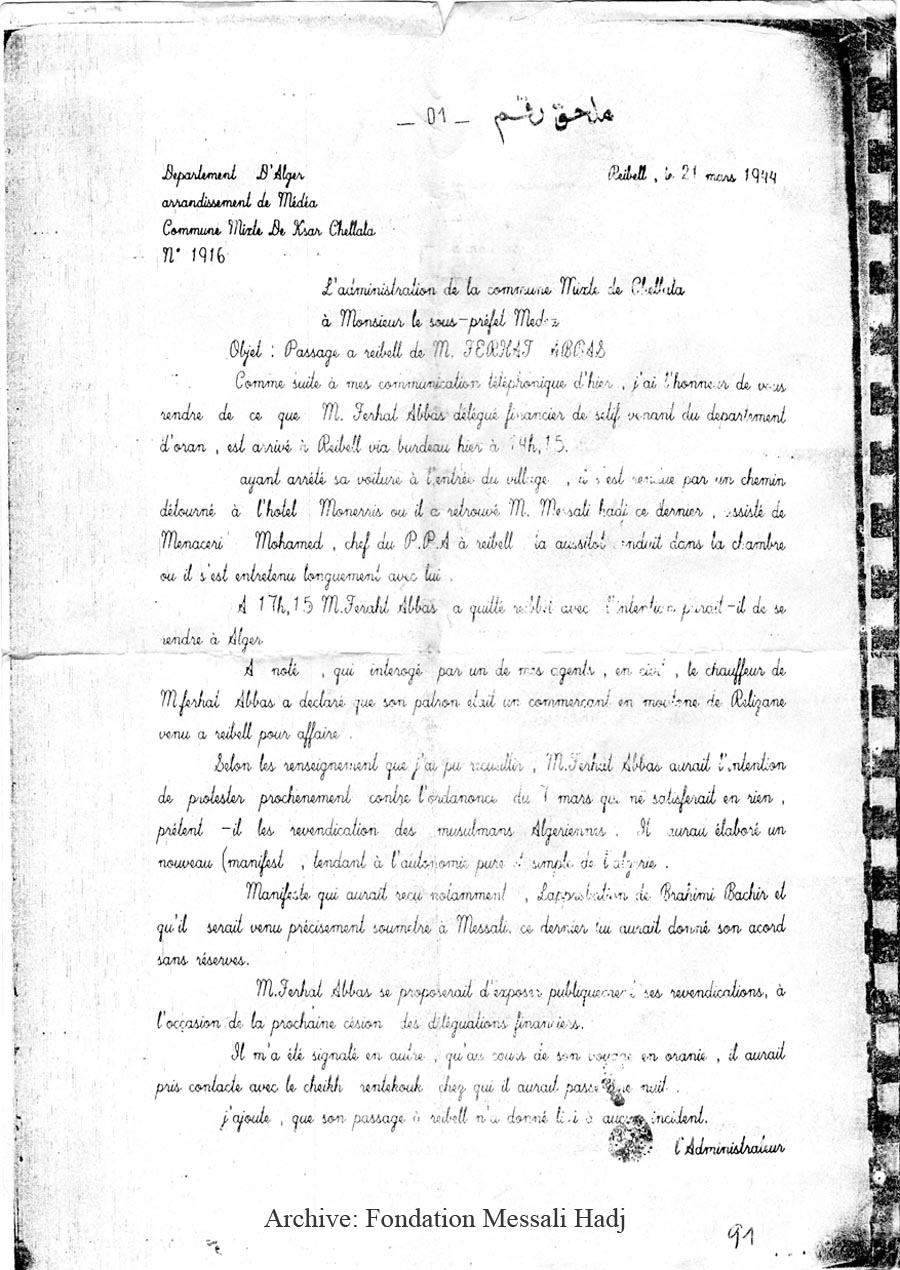 ملحق رقم - 01 -
Departement D'Alger
Reibell, le 21 mars 1944
arrandissement de Médéa
Commune Mixte De Ksar Chellala
N° 1916
L'administration de la commune Mixte de Chellala
à Monsieur le sous-préfet Medea
Objet : Passage a reibell de M. FERHAT ABBAS
Comme suite à mes communication téléphonique d'hier, j'ai l'honneur de vous
rendre de ce que M. Ferhat Abbas délégué financier de setif venant du departement
d'oran, est arrivé à Reibell via burdeau hier à 14h,15.
ayant arrété sa voiture à l'entrée du village, il s'est rendue par un chemin
détourné à l'hotel Monerris ou il a retrouvé M. Messali hadj ce dernier, assisté de
Menaceri Mohamed, chef du P.P.A à reibell aussitot conduit dans la chambre
ou il s'est entretenu longuement avec lui.
A 17h,15 M.Feraht Abbas a quitté reibbel avec l'intention parait-il de se
rendre à Alger
A noté, qui interogé par un de mes agents, en civil, le chauffeur de
M.ferhat Abbas a declaré que son patron etait un commerçant en moutone de Relizane
venu a reibell pour affaire.
Selon les renseignement que j'ai pu recueillir, M.Ferhat Abbas aurait l'intention
de protester prochènement contre l'ordanonce du 7 mars qui ne satisferait en rien,
prétent-il les revendication des musulmans Algeriennes. Il aurait élaboré un
nouveau (manifest, tendant à l'autonomie pure et simple de l'algerie.
Manifeste qui aurait reçu notamment, Lapprobation de Brahimi Bachir et
qu'il serait venu précisement soumetre à Messali. ce dernier lui aurait donné son acord
sans réserves.
M.Ferhat Abbas se proposerait d'exposer publiquement ses revendications, à
l'occasion de la prochaine césion des déléguations financiers.
Il m'a été signalé en autre, qu'au cours de son voyage en oranie, il aurait
pris contacte avec le cheikh rentekouk chez qui il aurait passe une nuit.
j'ajoute, que son passage à reibell n'a donné lieu à aucun incident.
l'Administrateur
Archive: Fondation Messali Hadj
91